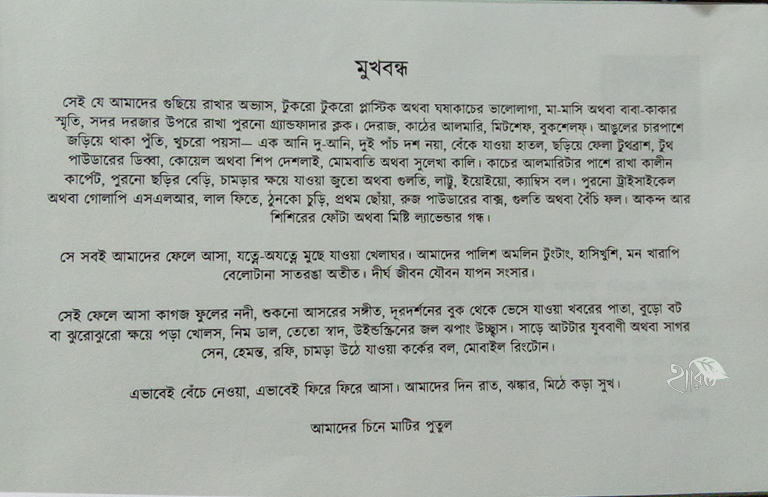 মুখবন্ধ
সেই যে আমাদের গুছিয়ে রাখার অভ্যাস, টুকরো টুকরো প্লাস্টিক অথবা ঘষাকাচের ভালোলাগা, মা-মাসি অথবা বাবা-কাকার
স্মৃতি, সদর দরজার উপরে রাখা পুরনো গ্র্যান্ডফাদার ক্লক। দেরাজ, কাঠের আলমারি, মিটশেফ, বুকশেলফ। আঙুলের চারপাশে
জড়িয়ে থাকা পুঁতি, খুচরো পয়সা— এক আনি দু-আনি, দুই পাঁচ দশ নয়া, বেঁকে যাওয়া হাতল, ছড়িয়ে ফেলা টুথব্রাশ, টুথ
পাউডারের ডিব্বা, কোয়েল অথবা শিপ দেশলাই, মোমবাতি অথবা সুলেখা কালি। কাচের আলমারিটার পাশে রাখা কালীন
কার্পেট, পুরনো ছড়ির বেড়ি, চামড়ার ক্ষয়ে যাওয়া জুতো অথবা গুলতি, লাট্টু, ইয়োইয়ো, ক্যাম্বিস বল। পুরনো ট্রাইসাইকেল
অথবা গোলাপি এসএলআর, লাল ফিতে, ঠুনকো চুড়ি, প্রথম ছোঁয়া, রুজ পাউডারের বাক্স, গুলতি অথবা বৈঁচি ফল। আকন্দ আর
শিশিরের ফোঁটা অথবা মিষ্টি ল্যাভেন্ডার গন্ধ।
সে সবই আমাদের ফেলে আসা, যত্নে-অযত্নে মুছে যাওয়া খেলাঘর। আমাদের পালিশ অমলিন টুংটাং, হাসিখুশি, মন খারাপি
বেলোটানা সাতরঙা অতীত। দীর্ঘ জীবন যৌবন যাপন সংসার।
সেই ফেলে আসা কাগজ ফুলের নদী, শুকনো আসরের সঙ্গীত, দূরদর্শনের বুক থেকে ভেসে যাওয়া খবরের পাতা, বুড়ো বট
বা ঝুরোঝুরো ক্ষয়ে পড়া খোলস, নিম ডাল, তেতো স্বাদ, উইন্ডস্ক্রিনের জল ঝপাং উচ্ছ্বাস। সাড়ে আটটার যুববাণী অথবা সাগর
সেন, হেমন্ত, রফি, চামড়া উঠে যাওয়া কর্কের বল, মোবাইল রিংটোন।
এভাবেই বেঁচে নেওয়া, এভাবেই ফিরে ফিরে আসা। আমাদের দিন রাত, ঝঙ্কার, মিঠে কড়া সুখ।
আমাদের চিনে মাটির পুতুল